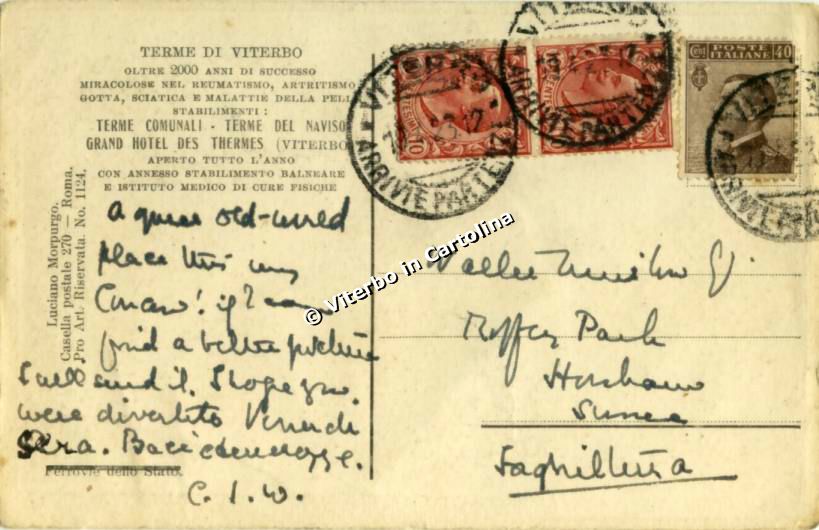 TERME DI VITERBO
OLTRE 2000 ANNI DI SUCCESSO
MIRACOLOSE NEL REUMATISMO, ARTRITISMO
GOTTA, SCIATICA E MALATTIE DELLA PELL
STABILIMENTI:
TERME COMUNALI - TERME DEL NAVISO
GRAND HOTEL DES THERMES (VITERBO
APERTO TUTTO L'ANNO
CON ANNESSO STABILIMENTO BALNEARE
E ISTITUTO MEDICO DI CURE FISICHE
Luciano Morpurgo.
Casella postale 270 — Roma.
Pro Art. Riservata. No. 1124.
A queer old-world
place this my
! if I can
find a better picture
I will send it.
were divertito Venerdi
Sera. Baci
C. I. W.
Ferrovie dello Stato.
© Viterbo in Cartolina
VITERBO
ARRIVI E PARTENZE
VITERBO
ARRIVI E PARTENZE
VITERBO
ARRIVI E PARTENZE
Cent POSTE ITALIANE 40
10
10
Walter
Roffey Park
Horsham
Sussex
Inghilterra